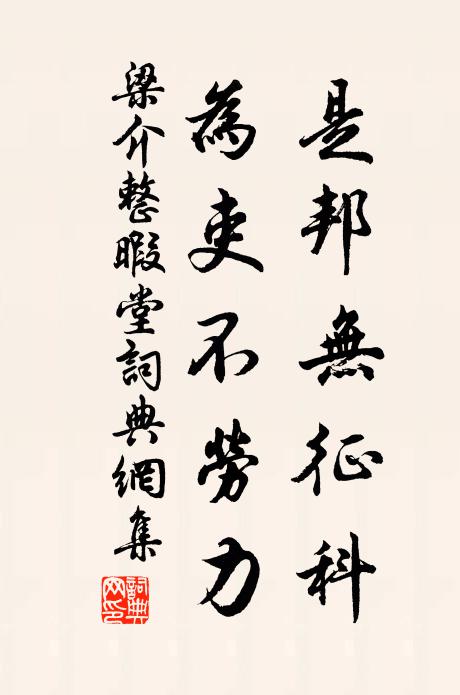 是邦無征科
為吏不勞力
梁介整暇堂詞典網集
詞典网印